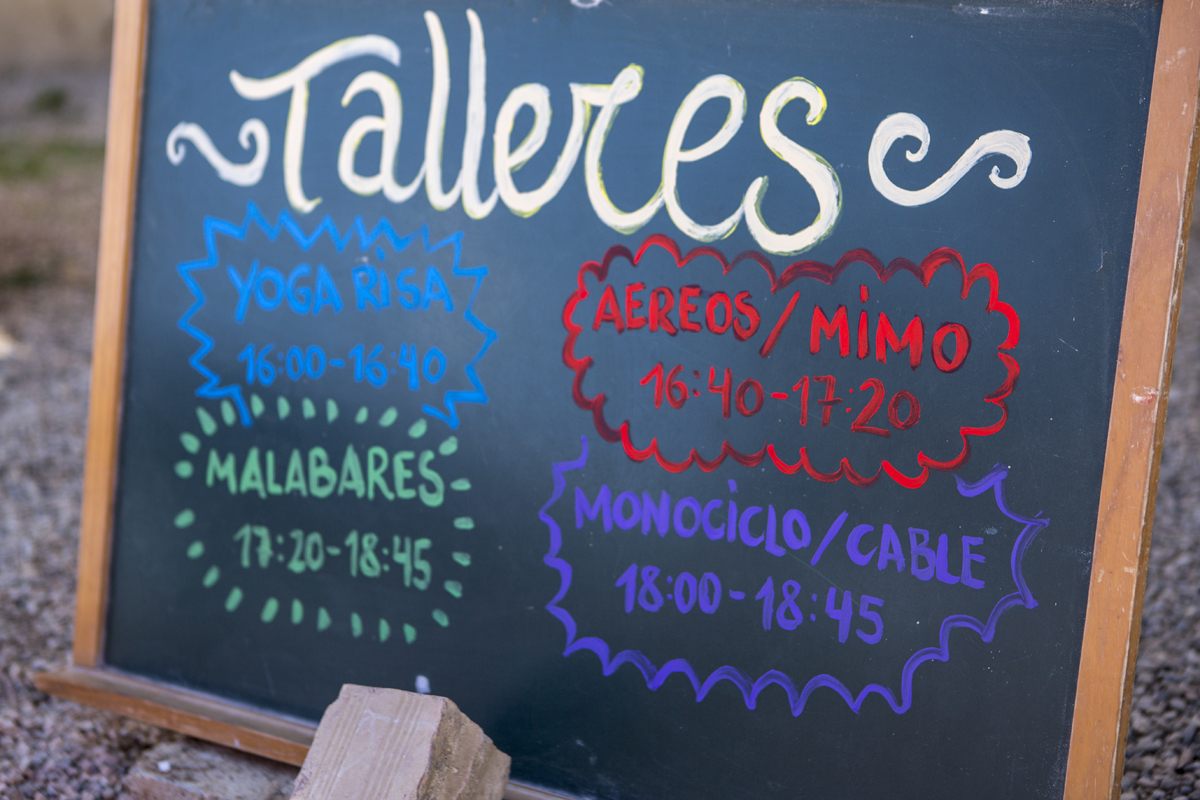 Talleres
YOGA RiSA
16:00-16:40
AEREOS/MiMO
16:40-17:20
MALABARES
17:20-18:45
MONOCiCLO/CABLE
18:00-18:45